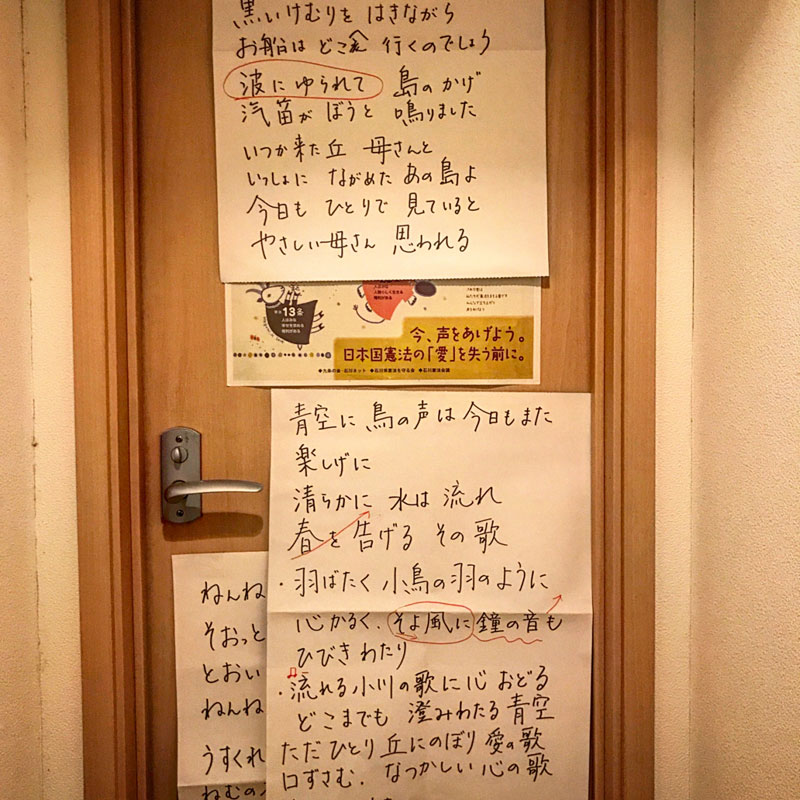 黒いけむりを はきながら
お船は どこへ 行くのでしょう
波にゆられて 島のかげ
汽笛が ぼうと 鳴りました
いつか来た丘 母さんと
いっしょに ながめた あの島よ
今日も ひとりで 見ていると
やさしい母さん 思われる
第13条
今、声をあげよう。
日本国憲法の「愛」を失う前に。
◆九条の会・石川ネット ◆石川県憲法を守る会 ◆石川憲法会議
青空に 鳥の声は 今日もまた
楽しげに
清らかに 水は 流れ
春を 告げる その歌
・羽ばたく 小鳥の羽のように
心かるく、そよ風に 鐘の音も
ひびきわたり
・流れる小川の歌に心 おどる
どこまでも 澄みわたる 青空
ただひとり 丘にのぼり 愛の歌
口ずさむ、なつかしい心の歌
ねんね
そおっと
とおい
ねんね
うすくれ
ねむの